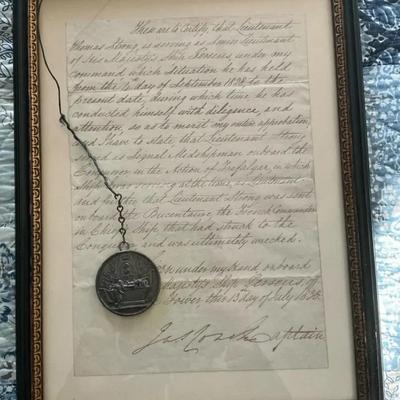 These are to Certify, that Lieutenant
Thomas Strong is serving as Senior Lieutenant
of His Majesty's Ship Perseus, under my
command which situation he has held
from the 7th day of September 1828, to the
present date, during which time he has
conducted himself with diligence, and
attention, so as to merit my entire approbation,
and I have to state that Lieutenant Strong
served as Signal Midshipman onboard the
Conqueror in the Action of Trafalgar, in which
Ship I was serving at the time, as Lieutenant
and further that Lieutenant Strong was sent
onboard the Bucentaure, the French Commander
in Chief's Ship that had struck to the
Conqueror and was ultimately wrecked.
Given under my hand onboard
Majesty's Ship Perseus, off
Tower this 13th day of July 1830.
Captain